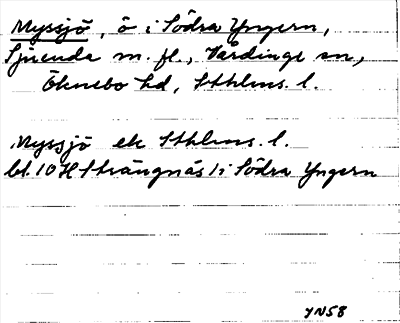 Myssjö, ö i Södra Yngern,
Sjuenda m. fl., Vårdinge sn,
Öknebo hd, Sthlms. l.
Myssjö ek Sthlms. l.
bl. 10 H Strängnäs 1 i Södra Yngern
YN58